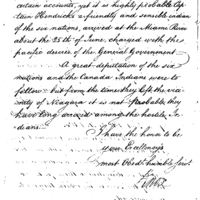 certain accounts, yet it is highly probable Cap-
tain Hendricks a friendly and sensible indian
of the six nations, arrived at the Miami River
about the 15th of June, charged with the
pacific desires of the General Government—
A great deputation of the six
nations and the Canada Indians were to
follow— but from the time they left the vici-
nity of Niagara it is not probable they
have long arrived among the hostile In-
dians—
I have the honor to be
your Excellency's
most Obedt. humble Servt.